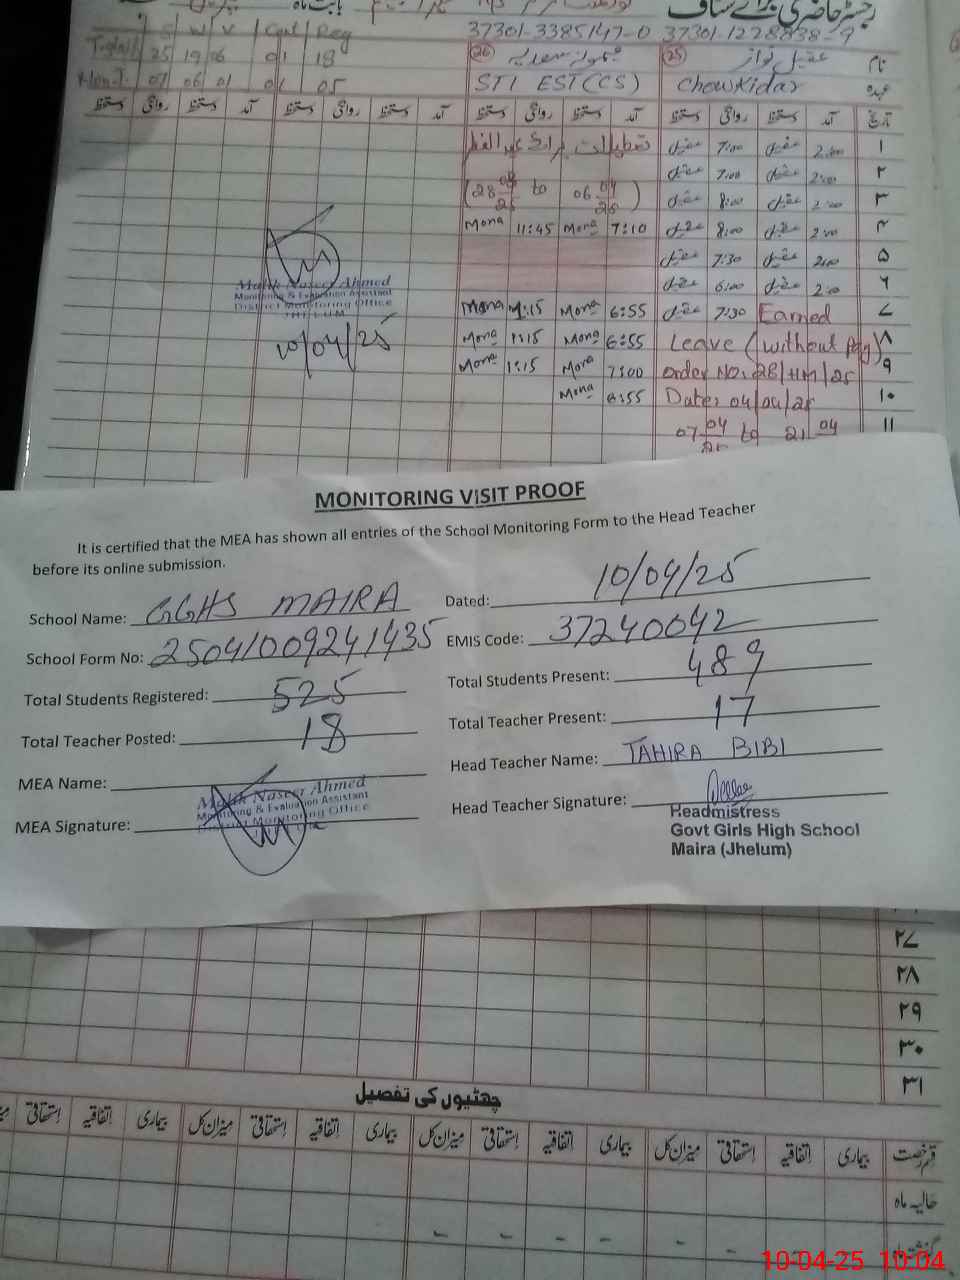 رجسٹر حاضری برائے سٹاف
بابت ماہ
S W V Cat Reg
37301-3385147-0 37301-1278838-9
Total 25 19 06 01 18
26 25 عقیل نواز نام
Non.T 07 06 01 01 05
STI EST(CS) Chowkidar عہدہ
تاریخ آمد دستخط روانگی دستخط آمد دستخط روانگی دستخط آمد دستخط روانگی دستخط آمد دستخط روانگی دستخط
تعطیلات برائے عیدالفطر
۱ 2:00 عقیل 7:00 عقیل
۲ 2:00 عقیل 7:00 عقیل
(28 03/25 to 06 04/25)
۳ 2:00 عقیل 8:00 عقیل
Mona 11:45 Mona 7:10
۴ 2:00 عقیل 8:00 عقیل
۵ 2:00 عقیل 7:30 عقیل
۶ 2:00 عقیل 6:00 عقیل
Malik Naseer Ahmed
Monitoring & Evaluation Assistant
District Monitoring Office
JHELUM
10/04/25
Mona 1:15 Mona 6:55 عقیل 7:30 Earned ۷
Mona 1:15 Mona 6:55 Leave (without Pay) ۸
Mona 1:15 Mona 7:00 Order NO: 28/HM/25 ۹
Mona 6:55 Date: 04/04/25 ۱۰
07 04/25 to 21 04 ۱۱
MONITORING VISIT PROOF
It is certified that the MEA has shown all entries of the School Monitoring Form to the Head Teacher
before its online submission.
School Name: GGHS MAIRA Dated: 10/04/25
School Form No: 25041009241435 EMIS Code: 37240042
Total Students Registered: 525 Total Students Present: 489
Total Teacher Posted: 18 Total Teacher Present: 17
MEA Name: Head Teacher Name: TAHIRA BIBI
Malik Naseer Ahmed
Monitoring & Evaluation Assistant
District Monitoring Office
MEA Signature: Head Teacher Signature:
Headmistress
Govt Girls High School
Maira (Jhelum)
۲۷
۲۸
۲۹
۳۰
۳۱
چھٹیوں کی تفصیل
قسم رخصت بیماری اتفاقیہ استحقاقی میزان کل بیماری اتفاقیہ استحقاقی میزان کل بیماری اتفاقیہ استحقاقی میزان کل بیماری اتفاقیہ استحقاقی
حالیہ ماہ
10-04-25 10:04